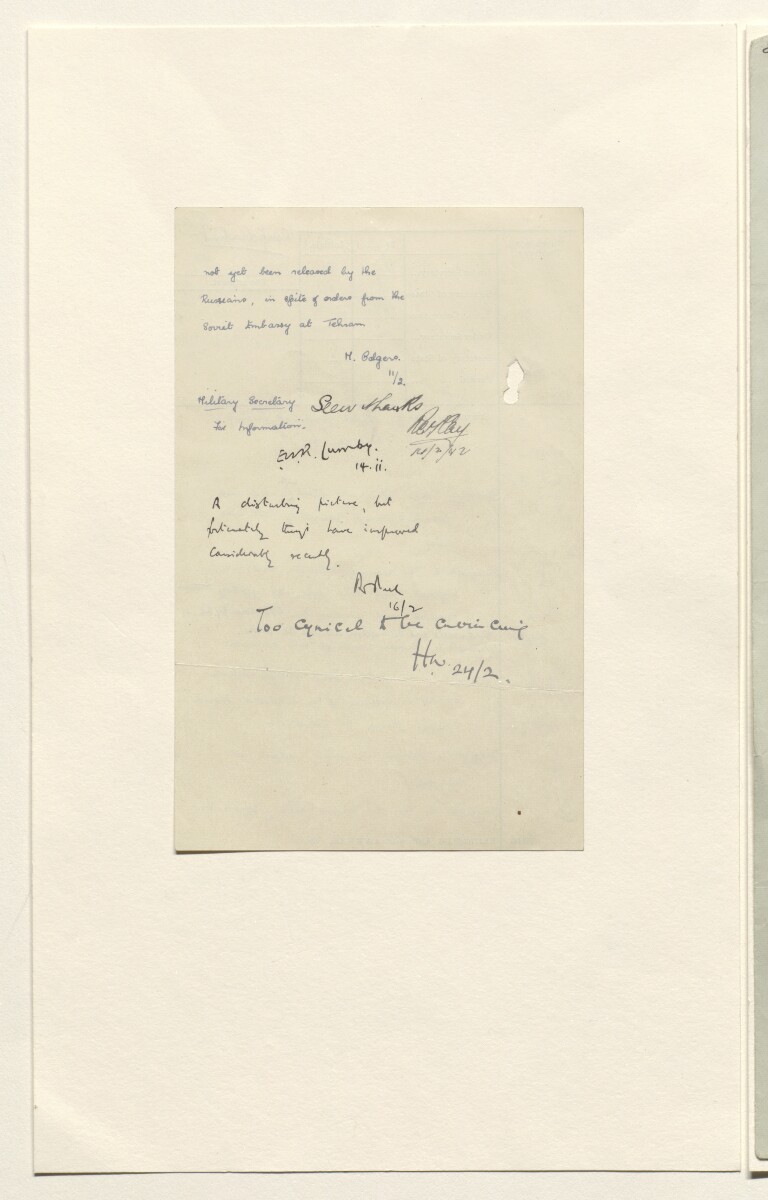 not yet been released by the
Russians, in spite of orders from the
Soviet Embassy at Tehran
H. Bolgers.
11/2.
Military Secretary Seen thanks
For Information.
20/2/42
E.W.R. Lumby.
14.ii.
A disturbing picture, but
fortunately things have improved
considerably recently.
R. Peel
16/2
Too cynical to be convincing
24/2.